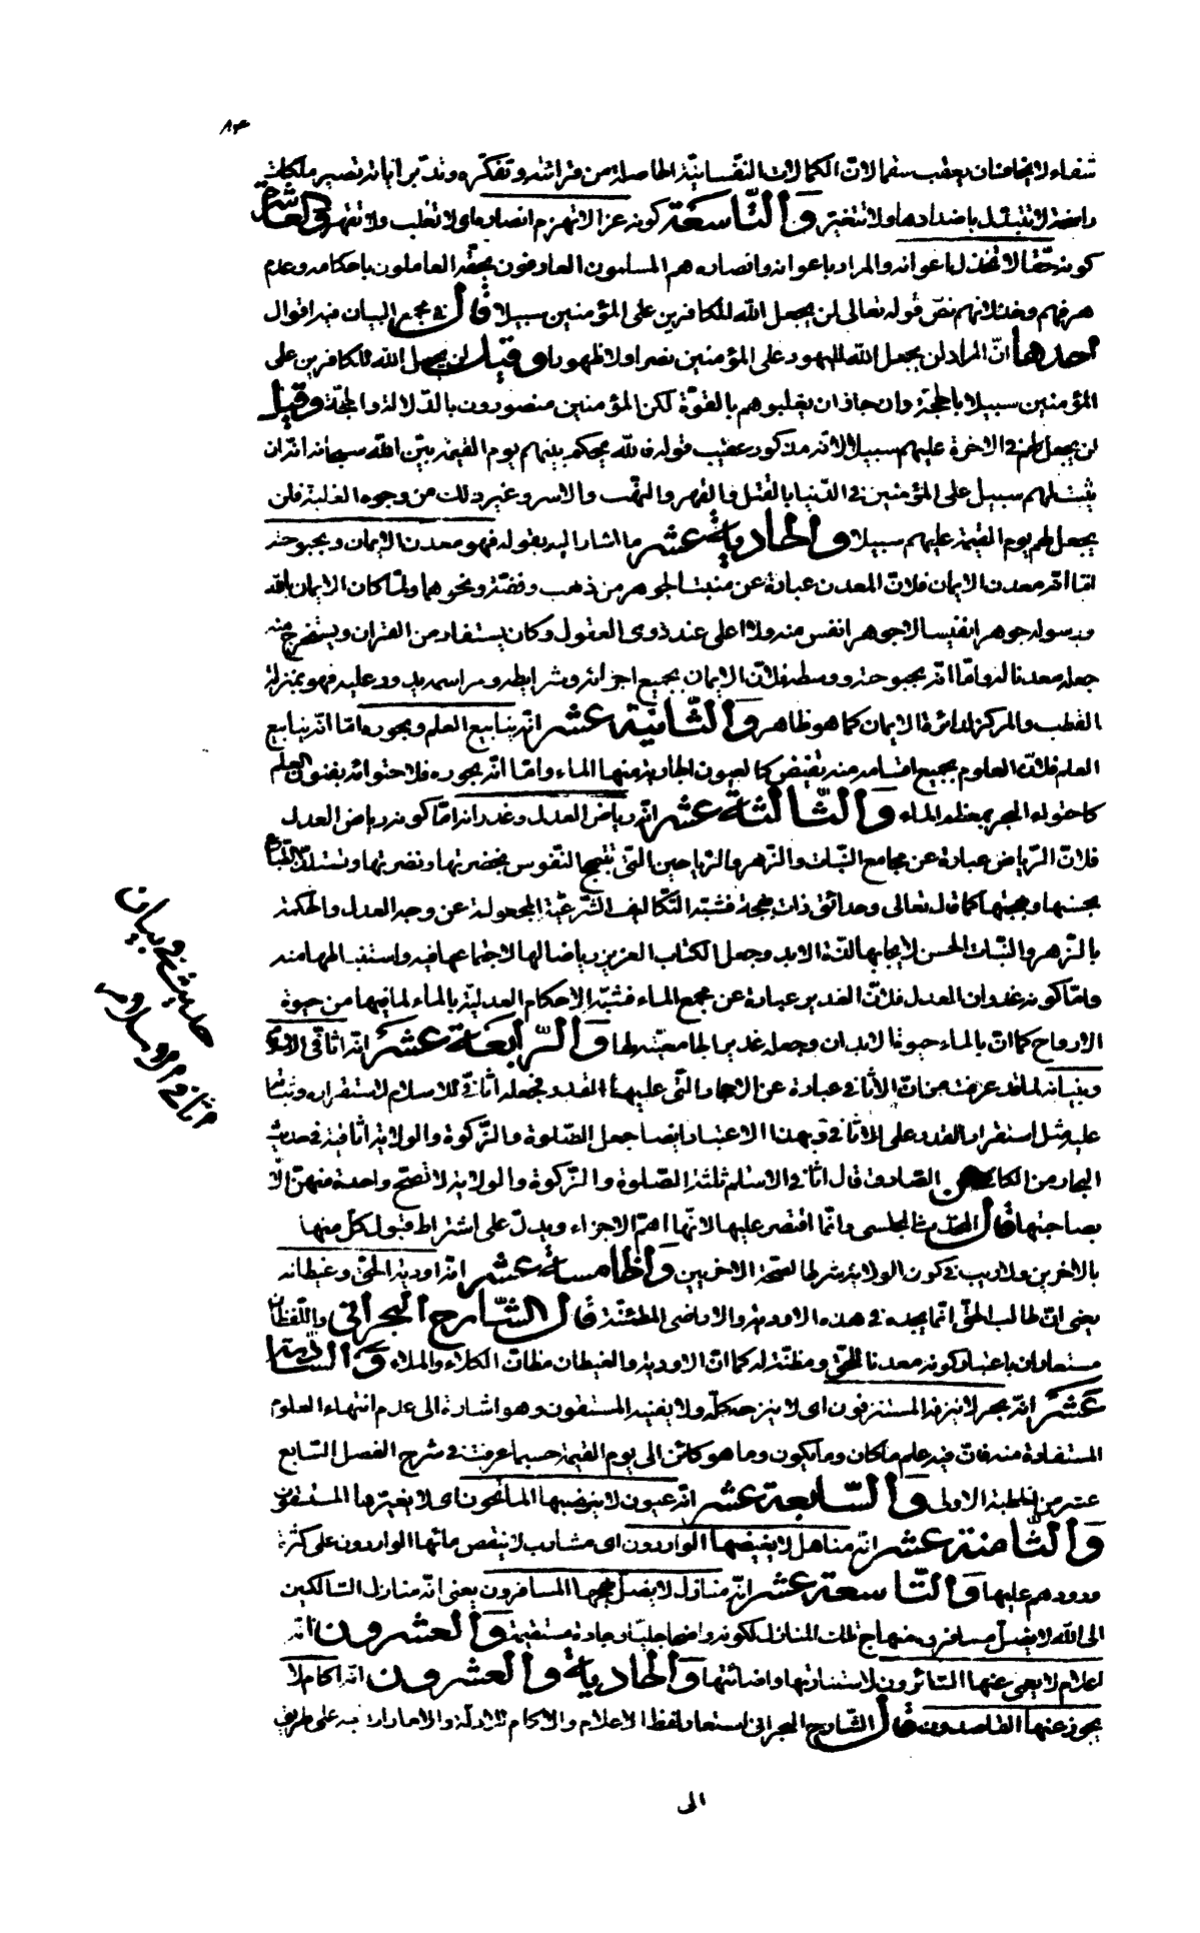 ٨٣
شفاء لا يخاف ان يعقب سقما لانّ الكمالات النفسانيّة الحاصلة من قرائته وتفكّره وتدبّر اياته تصير ملكات
راسخة لا تتبدّل باضدادها ولا تتغيّر والتّاسعة كونه عزّا لا تهزم انصاره اى لا تغلب ولا تقهر والعاشرة
كونه حقّا لا تخذل اعوانه والمراد باعوانه وانصاره هم المسلمون العارفون بحقّه العاملون باحكامه وعدم
هزمهم وخذلانهم نصّ قوله تعالى لن يجعل الله للكافرين على المؤمنين سبيلا قال في مجمع البيان فيه اقوال
احدها انّ المراد لن يجعل الله لليهود على المؤمنين نصرا ولا ظهورا وقيل لن يجعل الله للكافرين على
المؤمنين سبيلا بالحجّة وان جاز ان يغلبوهم بالقوّة لكن المؤمنين منصورون بالدّلالة والحجّة وقيل
لن يجعل لهم في الاخرة عليهم سبيلا لانّه مذكور عقيب قوله فالله يحكم بينهم يوم القيمة بيّن الله سبحانه انّه ان
يثبت لهم سبيل على المؤمنين في الدّنيا بالقتل والقهر والنّهب والاسر وغير ذلك من وجوه الغلبة فلن
يجعل لهم يوم القيمة عليهم سبيلا والحادية عشر ما اشار اليه بقوله فهو معدن الايمان وبحبوحته
امّا انّه معدن الايمان فلانّ المعدن عبارة عن منبت الجوهر من ذهب وفضّة ونحوهما ولمّا كان الايمان بالله
ورسوله جوهرا نفيسا لا جوهر انفس منه ولا اعلى عند ذوى العقول وكان يستفاد من القران ويستخرج منه
جعله معدنا له وامّا انّه بحبوحته ووسطه فلانّ الايمان بجميع اجزائه وشرايطه ومراسمه يدور عليه فهو بمنزلة
القطب والمركز لدائرة الايمان كما هو ظاهر والثّانية عشر انّه ينابيع العلم وبحوره امّا انّه ينابيع
العلم فلانّ العلوم بجميع اقسامه منه تفيض كالعيون الجارية منها الماء وامّا انّه بحوره فلاحتوائه بفنون العلم
كاحتواء البحر بمعظم الماء والثّالثة عشر انّه رياض العدل وغدرانه امّا كونه رياض العدل
فلانّ الرّياض عبارة عن مجامع النّبات والزّهر والرّياحين التى تبتهج النّفوس بخضرتها ونضرتها وتستلذّ الطّباع
بحسنها وبهجتها كما قال تعالى وحدائق ذات بهجة فشبّه التّكاليف الشّرعيّة المجعولة عن وجه العدل والحكمة
بالزّهر والنّبات الحسن لايجابها لذّة الابد وجعل الكتاب العزيز رياضا لها لاجتماعها فيه واستنباطها منه
وامّا كونه غدران العدل فلانّ الغدير عبارة عن مجمع الماء فشبّه الاحكام العدليّة بالماء لما فيها من حيوة
الارواح كما انّ بالماء حيوة الابدان وجعله غديرا لجامعيّته لها والرّابعة عشر انّه اثافّى الاسلام
وبنيانه لما قد عرفت من انّ الاثافي عبارة عن الاحجار الّتى عليها القدر فجعله اثافّى للاسلام لاستقراره وثباته
عليه مثل استقرار القدر على الاثافي وبهذا الاعتبار ايضا جعل الصّلوة والزّكوة والولاية اثافيه في حديث
البحار من الكافي عن الصّادق قال اثافي الاسلم ثلثة الصّلوة والزّكوة والولاية لا تصحّ واحدة منهنّ الّا
بصاحبتها قال المحدّث المجلسى وانّما اقتصر عليها لانّها اهمّ الاجزاء ويدلّ على اشتراط قبول كلّ منها
بالاخرين ولا ريب في كون الولاية شرطا لصحّة الاخريين والخامسة عشر انّه اودية الحقّ وغيطانه
يعنى انّ طالب الحقّ انّما يجده في هذه الاودية والاراضى المطمئنّة قال الشّارح البحرانى واللّفظان
مستعاران باعتبار كونه معدنا للحقّ ومظنّة له كما انّ الاودية والغيطان مظانّ الكلاء والماء والسّادسة
عشر انّه بحر لا ينزفه المستنزفون اى لا ينزحه كلّه ولا يفنيه المستقون وهو اشارة الى عدم انتهاء العلوم
المستفادة منه فانّ فيه علم ما كان وما يكون وما هو كائن الى يوم القيمة حسبما عرفت في شرح الفصل السّابع
عشر من الخطبة الاولى والسّابعة عشر انّه عيون لا ينضبها الماتحون اى لا يغيّرها المستقون
والثّامنة عشر انّه مناهل لا يغيضها الواردون اى مشارب لا ينقص مائها الواردون على كثرة
ورودهم عليها والتّاسعة عشر انّه منازل لا يضلّ نهجها المسافرون يعنى انّه منازل السّالكين
الى الله لا يضلّ مسافرون منهاج تلك المنازل لكونه واضحا جليّا وجادة مستقيمة والعشرون انّه
اعلام لا يعمى عنها السّائرون لاستنارتها واضائتها والحادية والعشرون انّه اكام لا
يجوز عنها القاصدون قال الشّارح البحرانى استعار لفظ الاعلام والاكام للادلّة والامارات فيه على طريق
الى
حديث في بيان
اثافي الاسلام